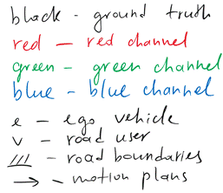 black - ground truth
red - red channel
green - green channel
blue - blue channel
e - ego vehicle
v - road user
/// - road boundaries
→ - motion plans